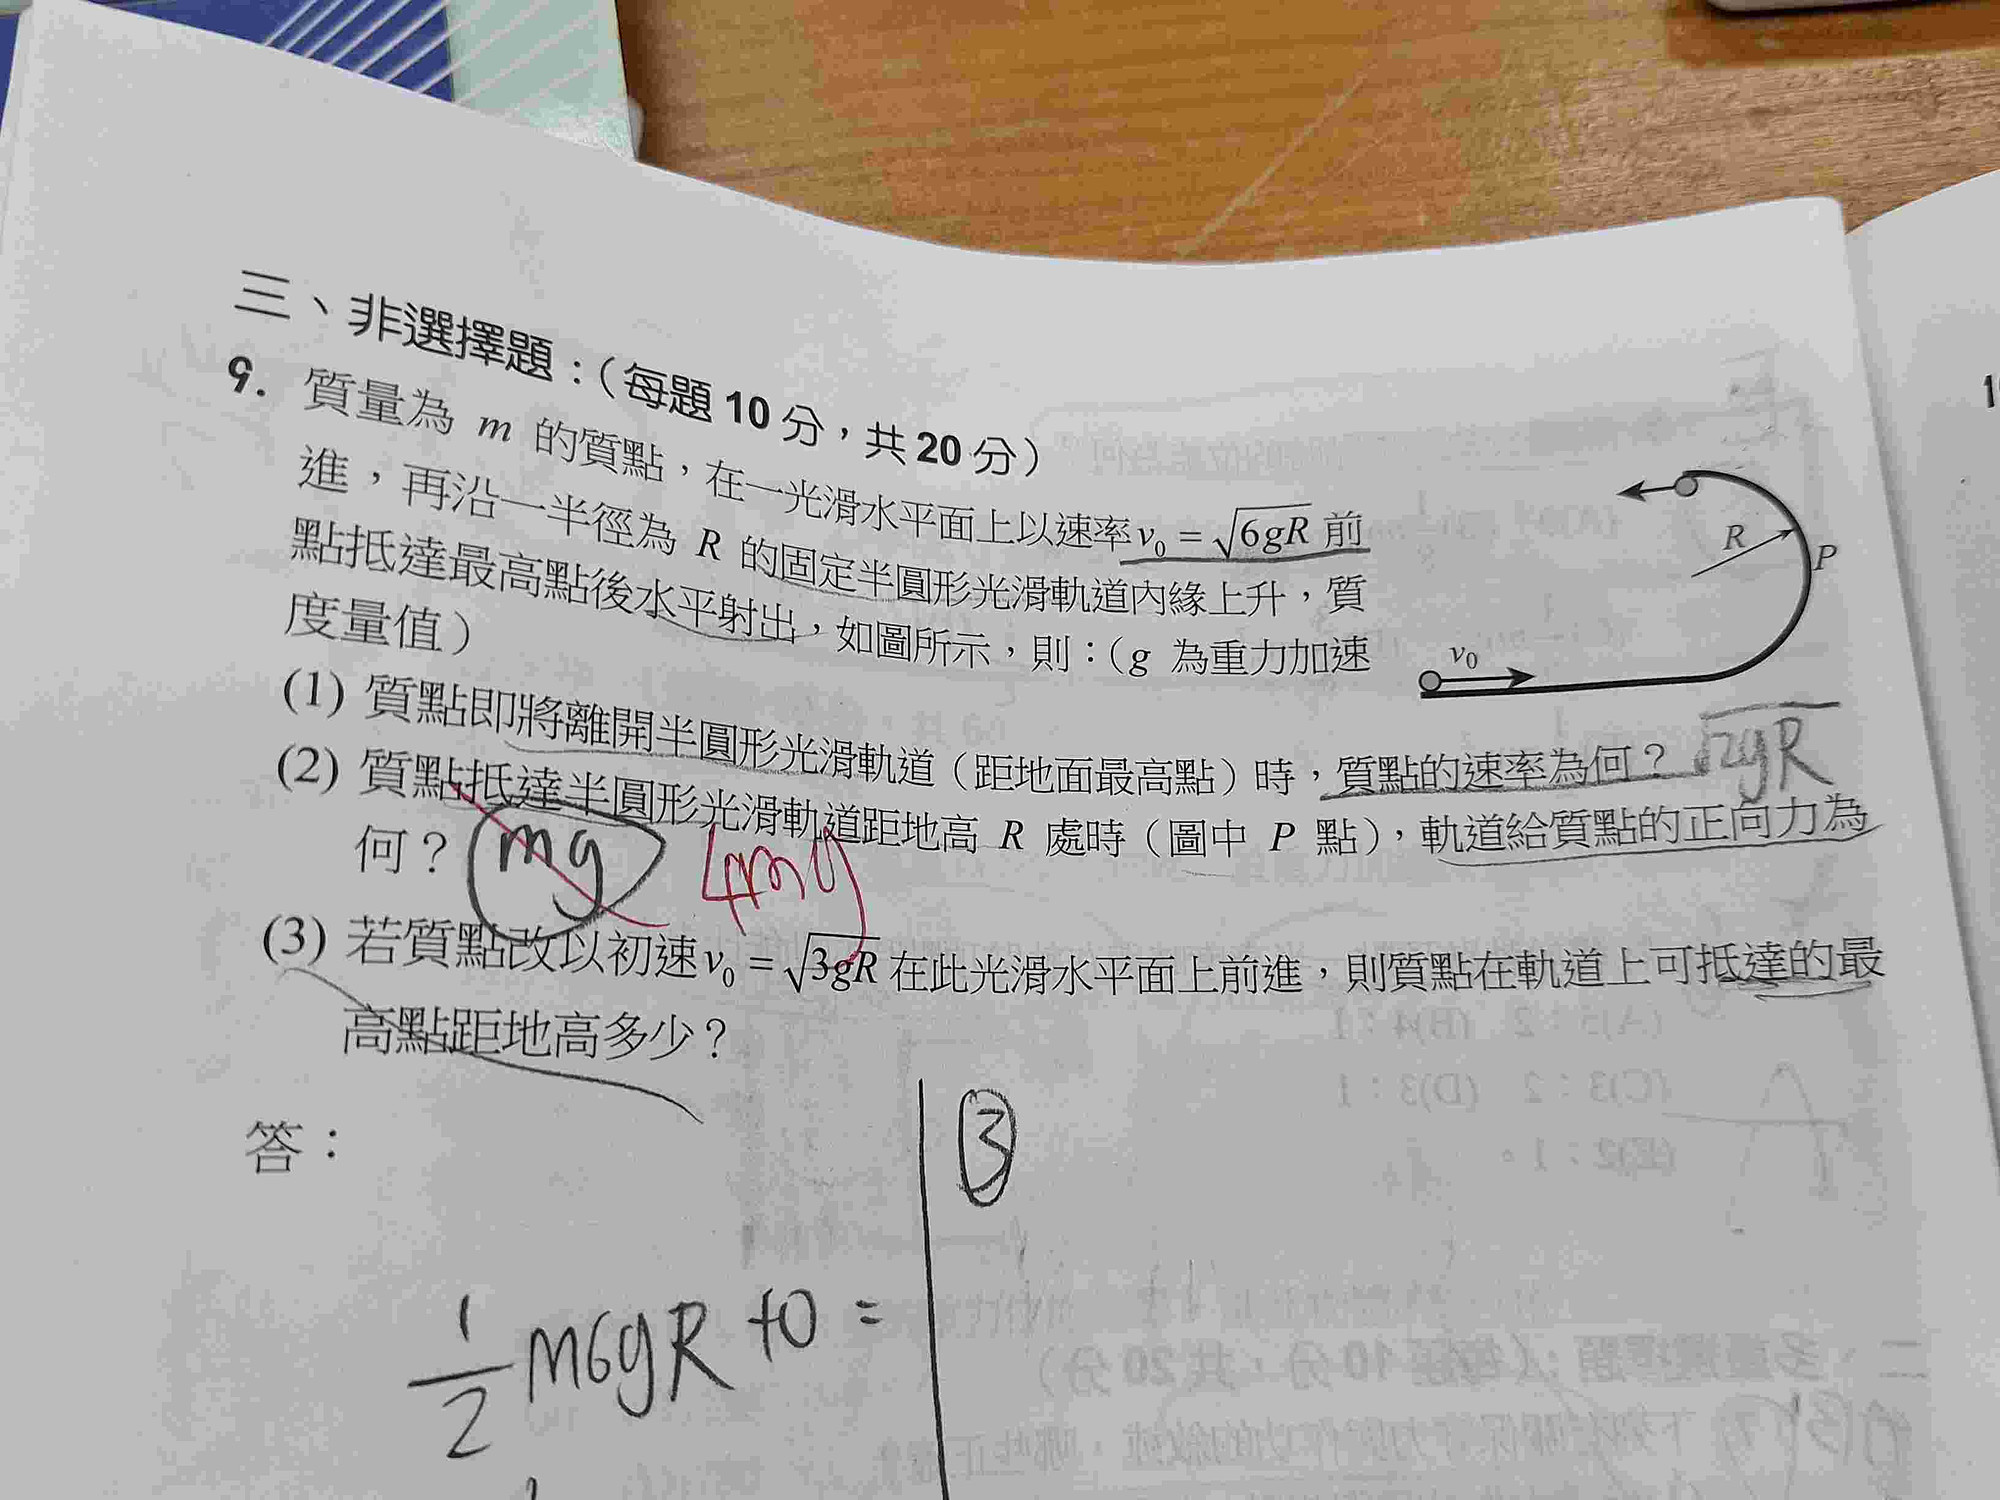 三、非選擇題：（每題 10 分，共 20 分）
9. 質量為 m 的質點，在一光滑水平面上以速率 v₀ = √6gR 前
進，再沿一半徑為 R 的固定半圓形光滑軌道內緣上升，質
點抵達最高點後水平射出，如圖所示，則：（g 為重力加速
度量值）
R
P
v₀
(1) 質點即將離開半圓形光滑軌道（距地面最高點）時，質點的速率為何？ √2gR
(2) 質點抵達半圓形光滑軌道距地高 R 處時（圖中 P 點），軌道給質點的正向力為
何？ mg 4mg
(3) 若質點改以初速 v₀ = √3gR 在此光滑水平面上前進，則質點在軌道上可抵達的最
高點距地高多少？
答：
③
1/2 m6gR + 0 =